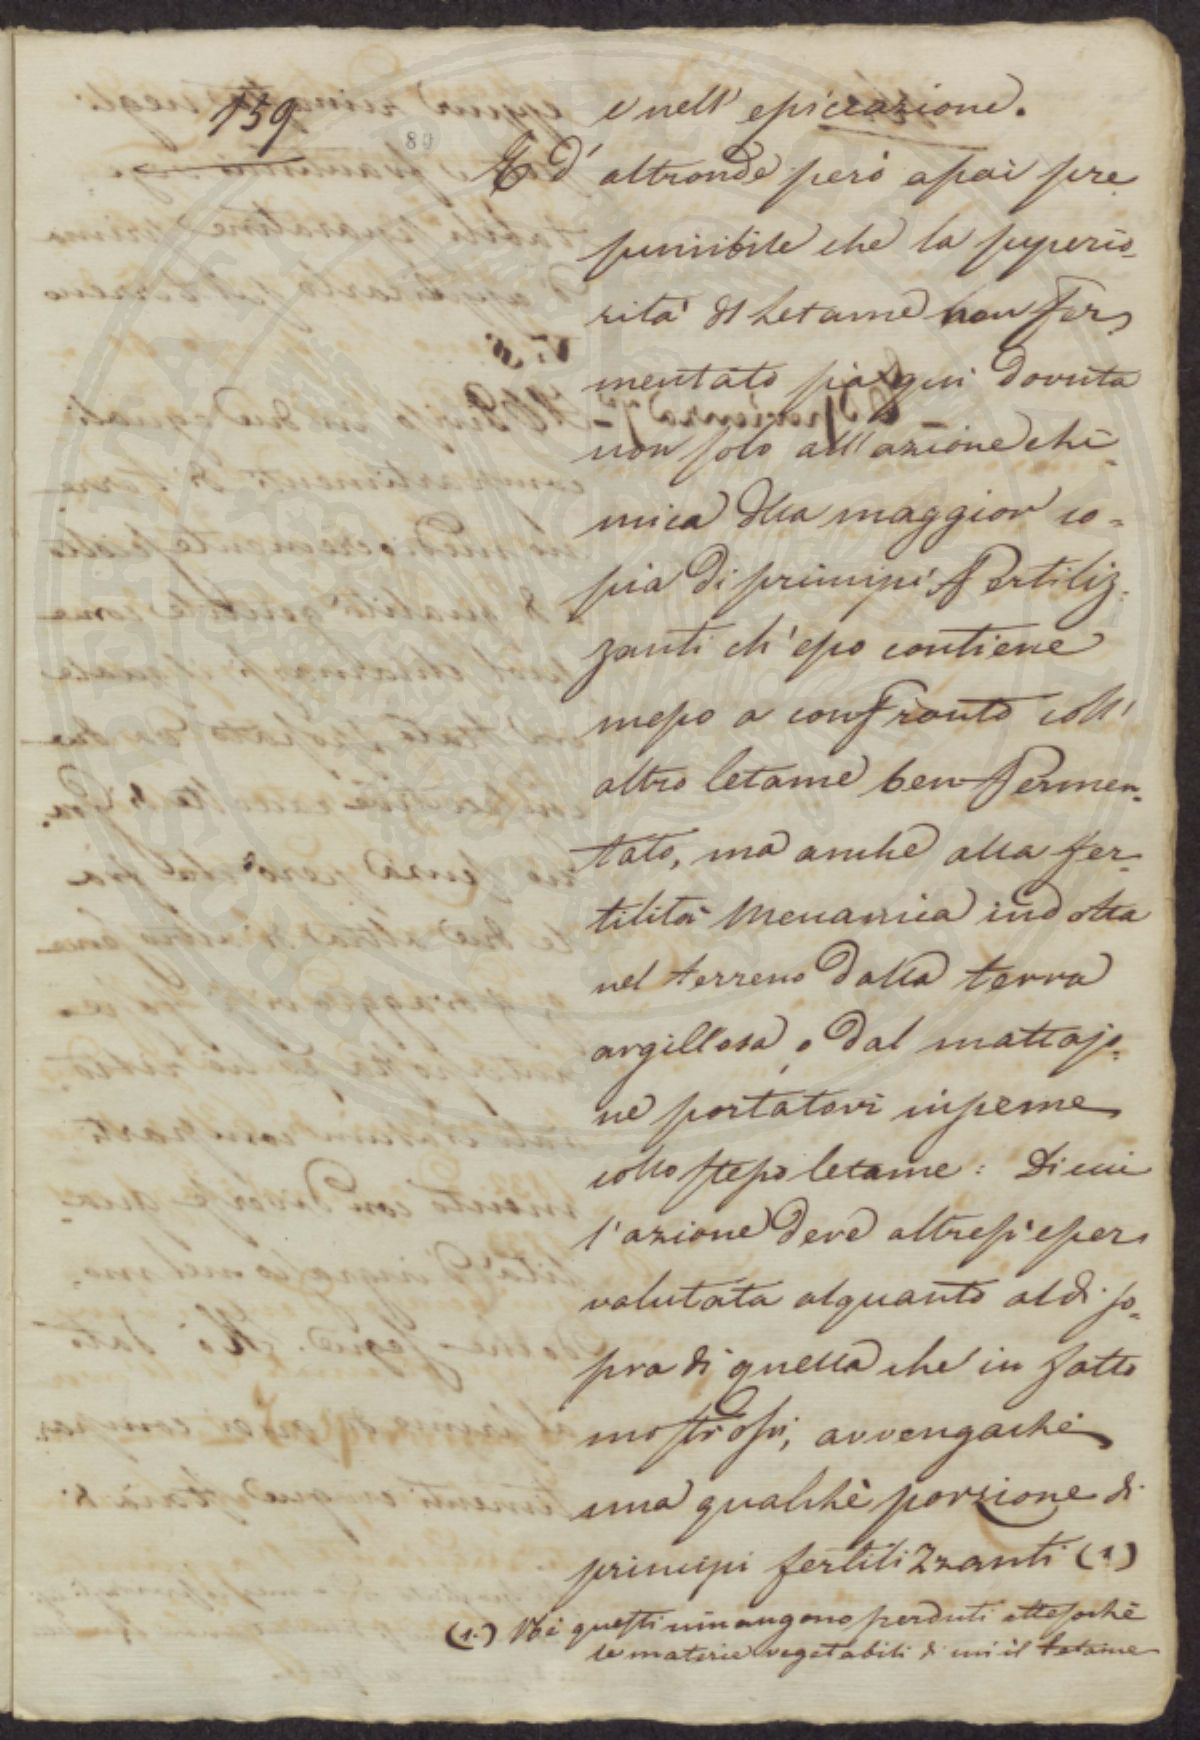 159
80
e nell' epicrazione.
E d' altronde però assai pre
sumibile che la superio-
rità del Letame non fer-
mentato sia qui dovuta
non solo all'azione chi-
mica della maggior co-
pia di principi fertiliz-
zanti ch'esso contiene
messo a confronto coll'
altro letame ben fermen-
tato, ma anche alla fer-
tilità Meccanica indotta
nel terreno dalla terra
argillosa, o dal mattajo-
ne portatovi insieme
collo stesso letame: Di cui
l'azione deve altresì esser
valutata alquanto al di so-
pra di quella che in fatto
mostrossi, avvengachè
una qualchè porzione di
principi fertilizzanti (1)
(1.) Nè questi rimangono perduti attesochè
le materie vegetabili di cui il letame